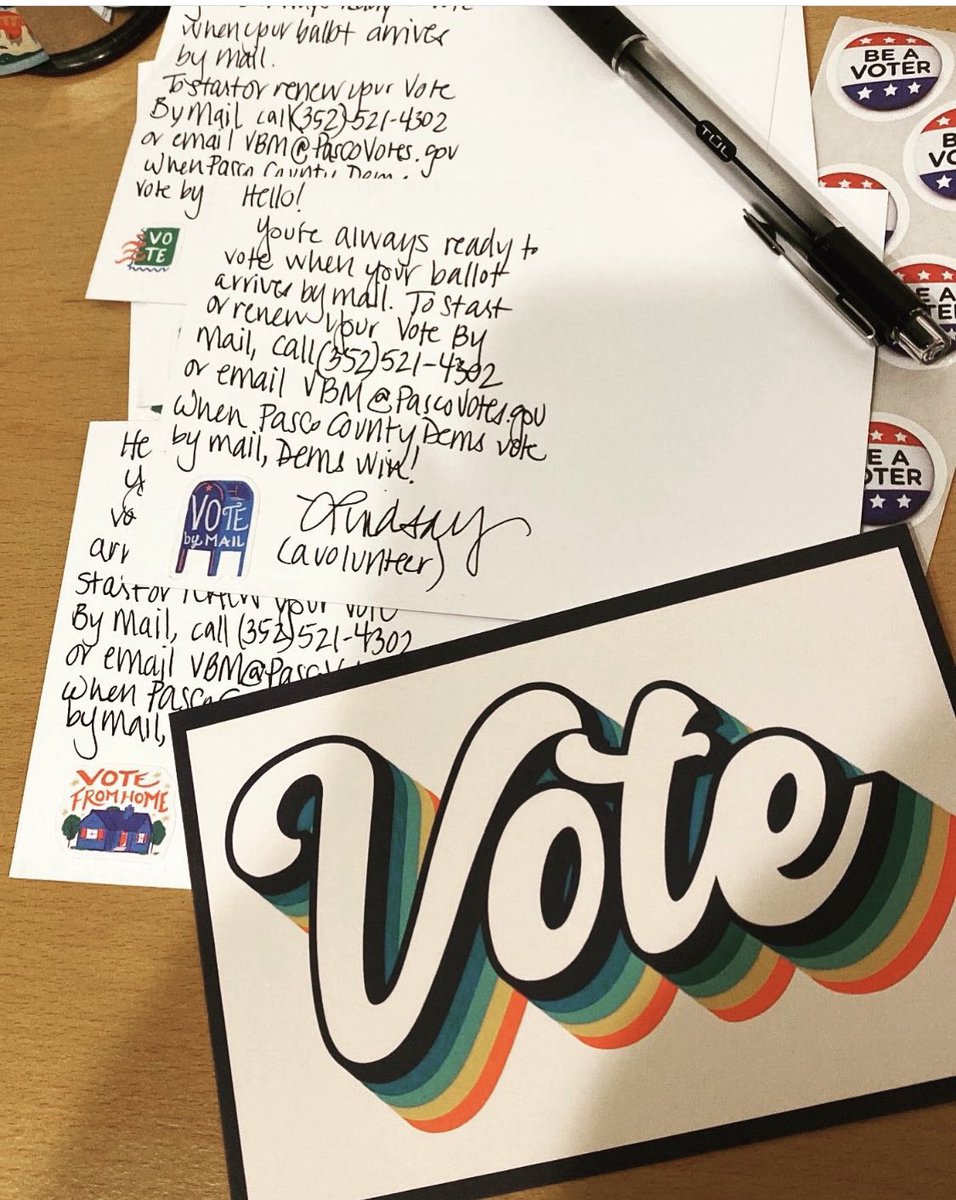 when your ballot arrives
by mail.
To start or renew your Vote
By Mail call (352)-521-4302
or email VBM@PascoVotes.gov
when Pasco County Dem
vote by
VO
TE
Hello!
You're always ready to
vote when your ballot
arrives by mail. To start
or renew your Vote By
Mail, call (352)521-4302
or email VBM@PascoVotes.gov
When Pasco County Dems vote
by mail, Dems win!
VOTE
by MAIL
Lindsay
(a volunteer)
He
arr
start or renew your vote
By Mail, call (352)521-4302
or email VBM@Pasc
when Pasc
by mail,
VOTE
FROM HOME
Vote
TUL
BE A
VOTER
BE A
VOTER
BE A
VOTER